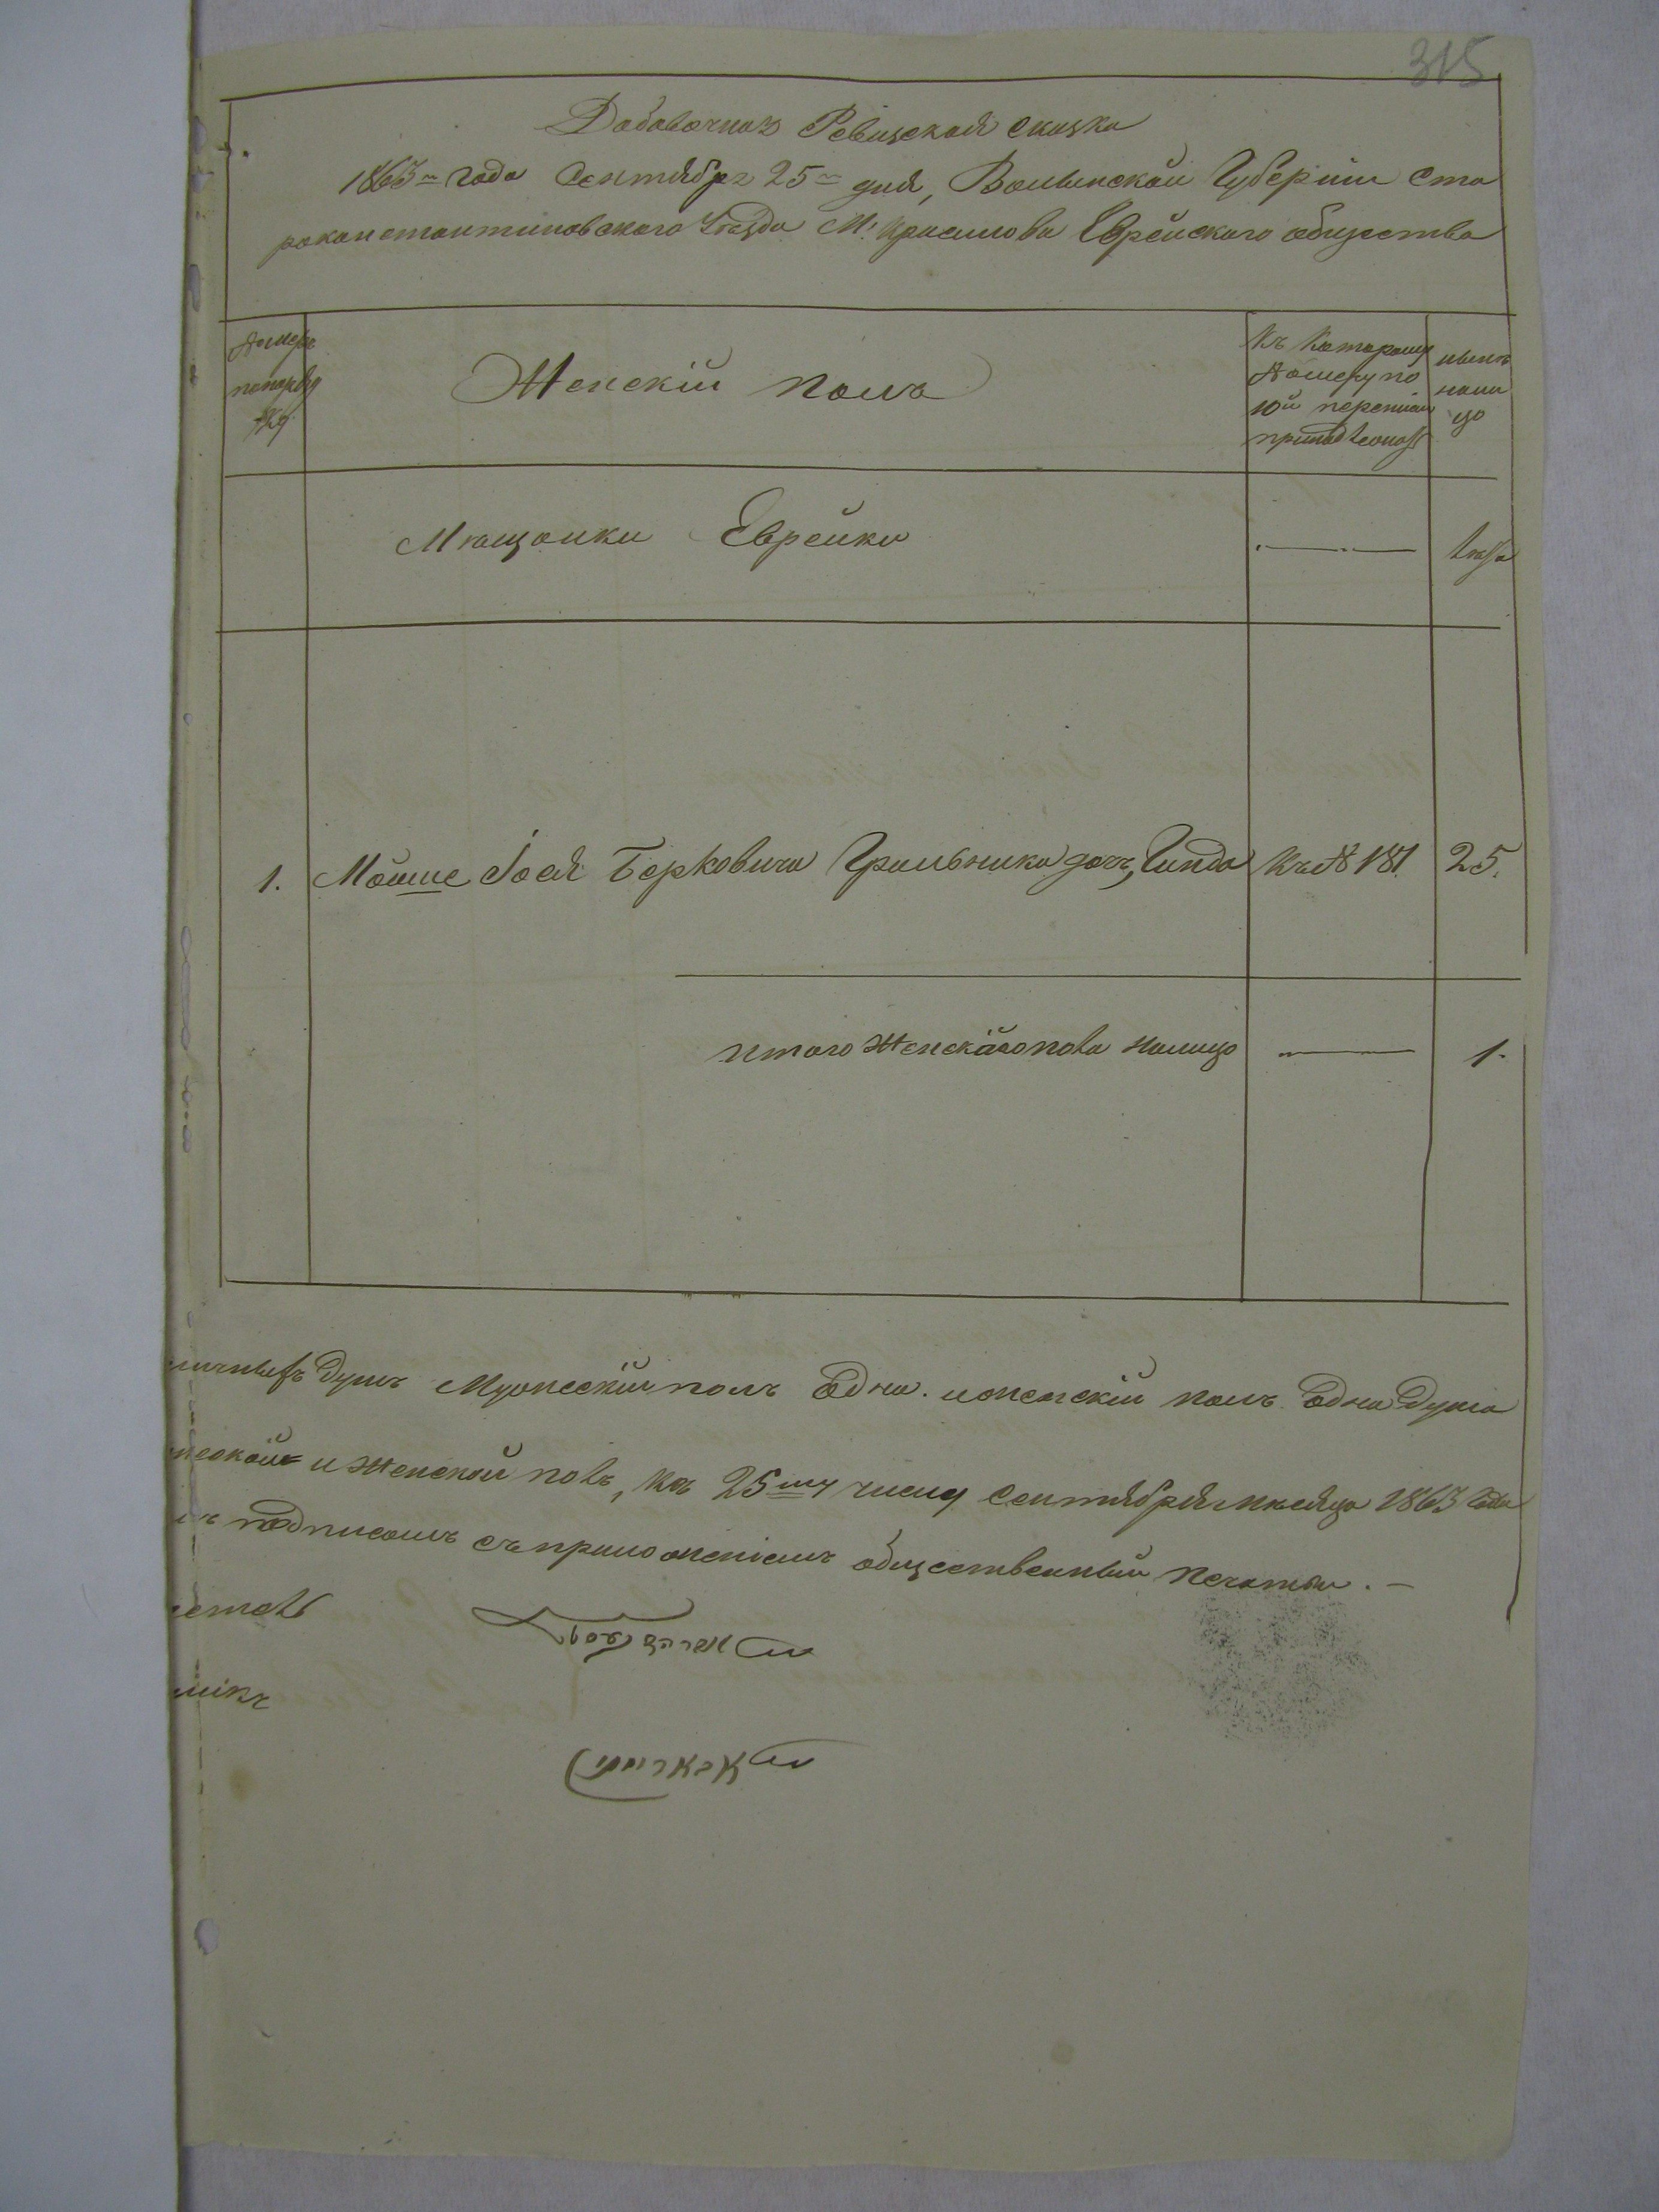 315
Добавочная Ревизская сказка
1863го года Сентября 25го дня, Волынской Губернiи Ста
роконстантиновского Уезда М. Красилова Еврейского общества
Номера
попоряд
ку
Женскiй полъ
Къ Которому
Номеру по
10й переписи
принадлежатъ
нынѣ
нали
цо
Мѣщанки Еврейки
лѣта
1. Мошие Iося Берковича Грильника дочь, Гинда Къ № 181 25.
итого Женскаго пола налицо 1.
ичныхъ душъ Мужескiй полъ Одна. и женскiй полъ Одна Душа
жеской и Женской полъ, къ 25му числу Сентября мѣсяца 1863 Года
ъ подписомъ съ приложенiемъ общественный печатьи.